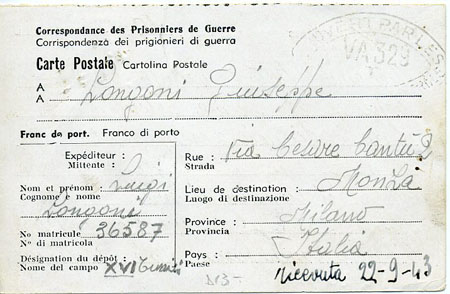 Correspondance des Prisonniers de Guerre
Corrispondenza dei prigionieri di guerra
Carte Postale Cartolina Postale
OUVERT PAR LES
VA 329
A
A Longoni Giuseppe
Franc de port. Franco di porto
Expéditeur :
Mittente :
Nom et prénom : Luigi
Cognome e nome
Longoni
No matricule 36587
No di matricola
Désignation du dépôt :
Nome del campo XVI
Rue : Via Cesare Cantù 2
Strada
Lieu de destination : Monza
Luogo di destinazione
Province : Milano
Provincia
Pays : Italia
Paese
Ricevuta 22-9-43